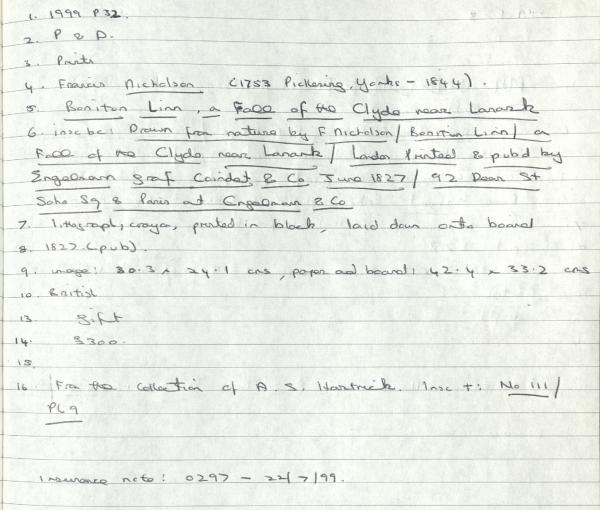 1. 1999 P32.
2. P & D.
3. Prints
4. Francis Nicholson (1753 Pickering, Yorks - 1844).
5. Boniton Linn, a Fall of the Clyde near Lanark
6. inscbe: Drawn from nature by F Nicholson / Boniton Linn / a
Fall of the Clyde near Lanark / London Printed & pubd by
Engelmann Graf Coindet & Co June 1827 / 92 Dean St
Soho Sq & Paris at Engelmann & Co
7. lithograph, crayon, printed in black, laid down onto board
8. 1827 (pub).
9. image: 30.3 x 24.1 cms, paper and board: 42.4 x 33.2 cms
10. British
13. gift
14. £300.
15.
16. From the collection of A. S. Hartrick. Insc t: No 111 /
PL 9
Insurance note: 0297 - 22/7/99.